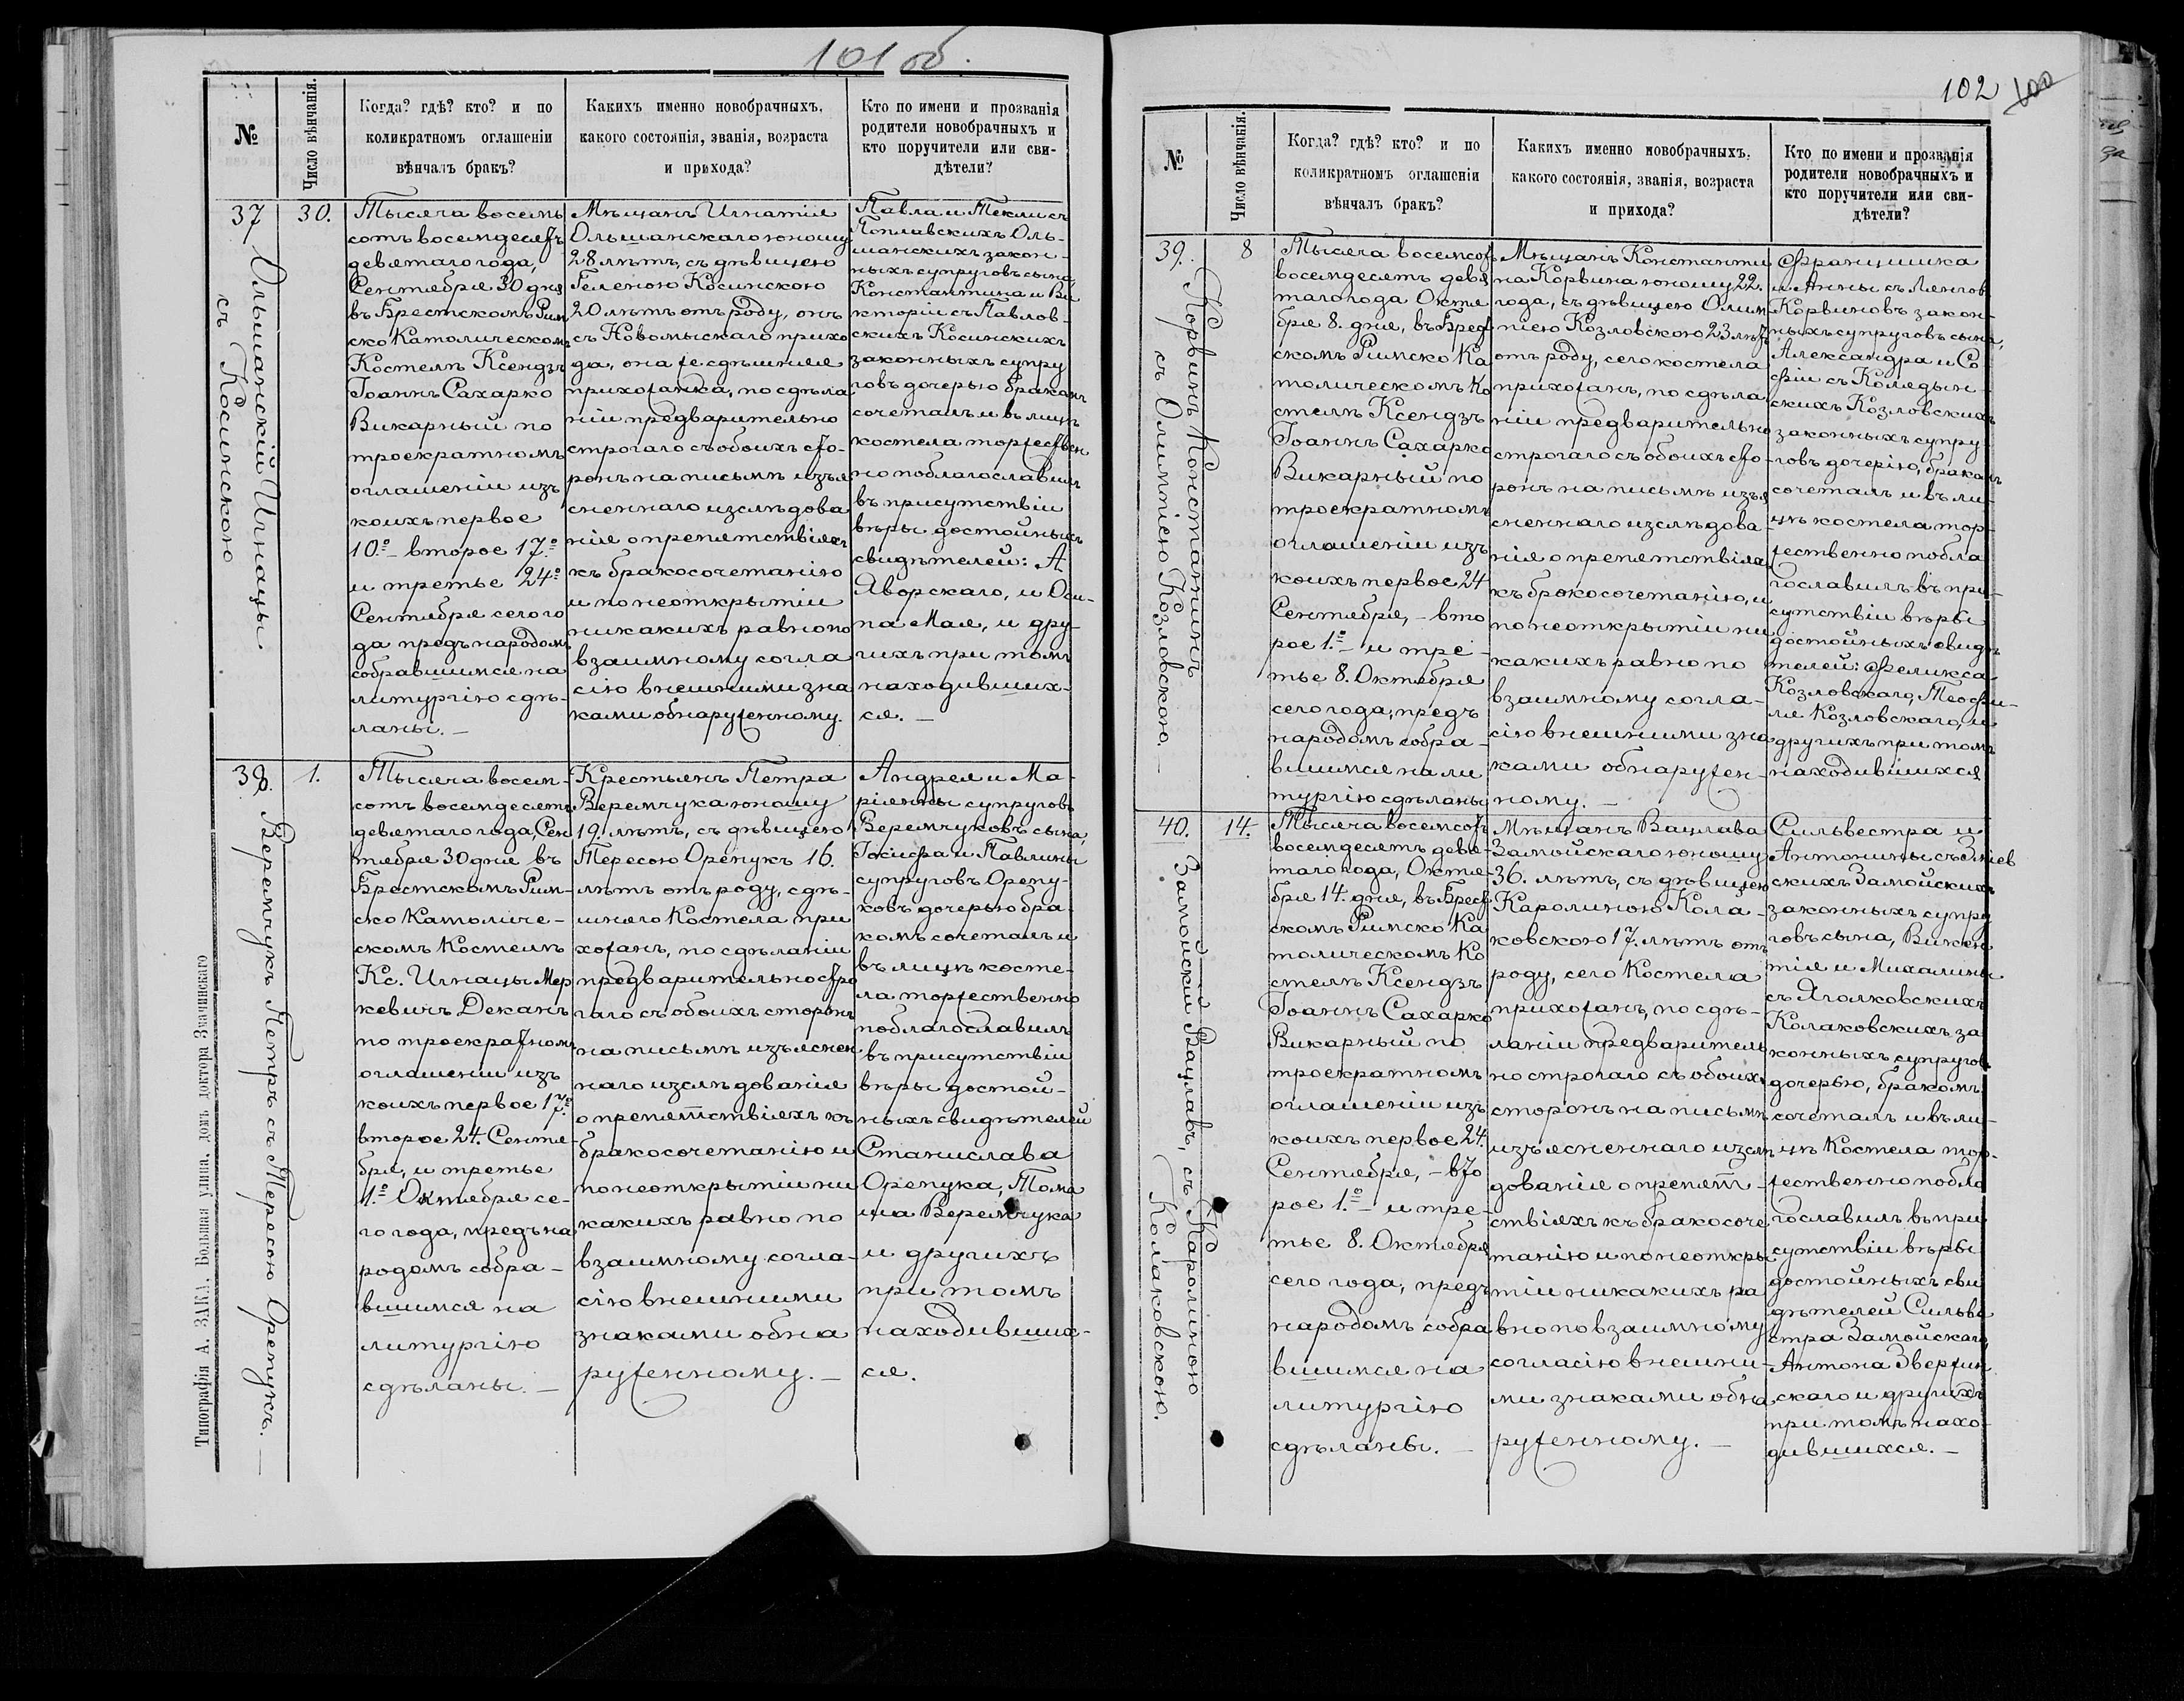 101 об.
№
Число вѣнчанія.
Когда? гдѣ? кто? и по
коликратномъ оглашеніи
вѣнчалъ бракъ?
Какихъ именно новобрачныхъ,
какого состоянія, званія, возраста
и прихода?
Кто по имени и прозванія
родители новобрачныхъ и
кто поручители или сви-
дѣтели?
37
Ольшанскій Игнацы
съ Косинскою
30.
Тысяча восемь
сотъ восемдесятъ
девятаго года,
Сентября 30 дня
въ Брестскомъ Рим
ско Католическомъ
Костелѣ Ксендзъ
Іоаннъ Сахарко
Викарный по
троекратномъ
оглашеніи изъ
коихъ первое
10.º второе 17.º
и третье 24º
Сентября сего го
да предъ народомъ
собравшимся на
литургію сдѣ-
ланы. —
Мѣщанъ Игнатія
Ольшанскаго юношу
28 лѣтъ, съ дѣвицею
Геленою Косинскою
20 лѣтъ отъ роду, онъ
съ Новомыскаго прихо
да, она же сдѣшняя
прихожанка, по сдѣла
ніи предварительно
строгаго съ обоихъ сто-
ронъ на письмѣ изъя
сненнаго изслѣдова
нія о препятствіяхъ
къ бракосочетанію
и по неоткрытіи
никакихъ равно по
взаимному согла
сію внешними зна
ками обнаруженному.
Павла и Текли съ
Поплавскихъ Оль-
шанскихъ закон-
ныхъ супруговъ сына,
Константина и Ви
кторіи съ Павлов-
скихъ Косинскихъ
законныхъ супру
говъ дочерью бракомъ
сочеталъ и въ лицѣ
костела торжествен
но поблагославилъ
въ присутствіи
вѣры достойныхъ
свидѣтелей: А.
Яворскаго, и Оси-
па Мая, и дру-
гихъ при томъ
находивших-
ся. —
38.
Веремчукъ Петръ съ Тересою Орепукъ. —
1.
Тысяча восем-
сотъ восемдесятъ
девятаго года, Сен
тября 30 дня въ
Брестскомъ Рим-
ско Католиче-
скомъ Костелѣ
Кс. Игнацы Мер
кевичъ Деканъ
по троекратномъ
оглашеніи изъ
коихъ первое 17.º
второе 24. Сентя-
бря, и третье
1.º Октября се-
го года, предъ на
родомъ собра-
вшимся на
литургію
сдѣланы. —
Крестьянъ Петра
Веремчука юношу
19. лѣтъ, съ дѣвицею
Тересою Орепукъ 16.
лѣтъ отъ роду, сдѣ-
шняго Костела при
хожанъ, по сдѣланіи
предварительно стро
гаго съ обоихъ сторонъ
на письмѣ изъяснен
наго изслѣдованія
о препятствіяхъ къ
бракосочетанію и
по неоткрытіи ни
какихъ равно по
взаимному согла-
сію внешними
знаками обна
руженному. —
Андрея и Ма-
ріянны супруговъ
Веремчуковъ сына,
Іосифа и Павлины
супруговъ Орепу-
ковъ дочерью бра-
комъ сочеталъ и
въ лицѣ косте-
ла торжественно
поблагославилъ
въ присутствіи
вѣры достой-
ныхъ свидѣтелей
Станислава
Орепука, Тома
ша Веремчука
и другихъ
при томъ
находивших-
ся.
Типографія А. ЗАКА, Большая улица, домъ доктора Значинскаго
102 100
№
Число вѣнчанія.
Когда? гдѣ? кто? и по
коликратномъ оглашеніи
вѣнчалъ бракъ?
Какихъ именно новобрачныхъ,
какого состоянія, званія, возраста
и прихода?
Кто по имени и прозванія
родители новобрачныхъ и
кто поручители или сви-
дѣтели?
39.
Корвинъ Константинъ
съ Олимпіею Козловскою. —
8
Тысяча восемсотъ
восемдесятъ девя
таго года Октя-
бря 8. дня, въ Брест
скомъ Римско Ка
толическомъ Ко
стелѣ Ксендзъ
Іоаннъ Сахарко
Викарный по
троекратномъ
оглашеніи изъ
коихъ первое 24
Сентября, - вто
рое 1.º и тре-
тье 8. Октября
сего года, предъ
народомъ собра-
вшимся на ли
тургію сдѣланы
Мѣщанъ Константи
на Корвина юношу 22.
года, съ дѣвицею Олим
піею Козловскою 23 лѣтъ
отъ роду, сего костела
прихожанъ, по сдѣла
ніи предварительно
строгаго съ обоихъ сто-
ронъ на письмѣ изъя
сненнаго изслѣдова-
нія о препятствіяхъ
къ брокосочетанію, и
по неоткрытіи ни
какихъ равно по
взаимному согла-
сію внешними зна
ками обнаружен-
ному. —
Францишка
и Анны съ Ленгов
Корвиновъ закон-
ныхъ супруговъ сына,
Александра и Со-
фіи съ Колядын-
скихъ Козловскихъ
законныхъ супру-
говъ дочерію, бракомъ
сочеталъ и въ ли-
цѣ костела тор-
жественно побла
гославилъ въ при-
сутствіи вѣры
достойныхъ свидѣ
телей: Феликса
Козловскаго, Теофи-
ля Козловскаго, и
другихъ при томъ
находившихся
40.
Замойскій Вацлавъ, съ Каролиною
Колаковскою.
14.
Тысяча восемсотъ
восемдесятъ девя-
таго года, Октя-
бря 14. дня, въ Брест
скомъ Римско Ка
толическомъ Ко
стелѣ Ксендзъ
Іоаннъ Сахарко
Викарный по
троекратномъ
оглашеніи изъ
коихъ первое 24.
Сентября, - вто
рое 1.º и тре-
тье 8. Октября
сего года, предъ
народомъ собра
вшимся на
литургію
сдѣланы. —
Мѣщанъ Вацлава
Замойскаго юношу
36. лѣтъ, съ дѣвицею
Каролиною Кола-
ковскою 17. лѣтъ отъ
роду, сего Костела
прихожанъ, по сдѣ-
ланіи предваритель
но строгаго съ обоихъ
сторонъ на письмѣ
изъясненнаго изслѣ
дованія о препят-
ствіяхъ къ бракосоче
танію и по неоткры
тіи никакихъ ра
вно по взаимному
согласію внешни-
ми знаками обна
руженному. —
Сильвестра и
Антонины съ Зміев
скихъ Замойскихъ
законныхъ супру
говъ сына, Викен
тія и Михалины
съ Яголковскихъ
Колаковскихъ за
конныхъ супруговъ
дочерью, бракомъ
сочеталъ и въ ли-
цѣ Костела тор-
жественно побла
гославилъ въ при
сутствіи вѣры
достойныхъ сви
дѣтелей Сильве
стра Замойскаго,
Антона Звержин
скаго и другихъ
при томъ нахо-
дившихся. —